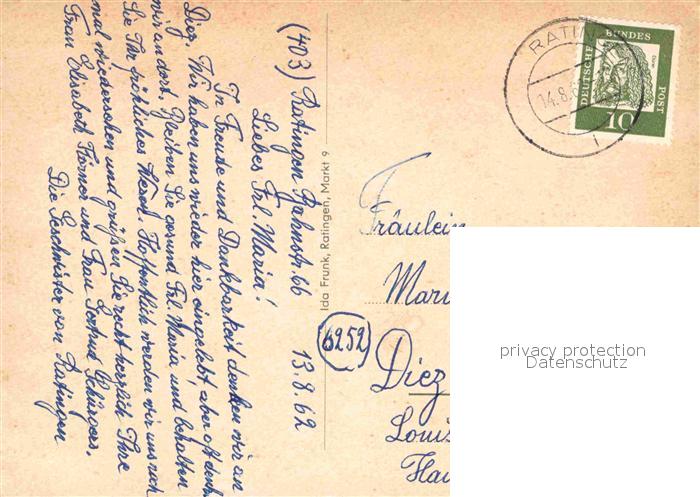 (403) Ratingen Bahnstr. 66 13.8.62
Liebes Frl. Maria!
In Freude und Dankbarkeit denken wir an
Diez. Wir haben uns wieder hier eingelebt, aber oft denken
wir an dort. Bleiben Sie gesund Frl. Maria, und behalten
Sie Ihr fröhliches Wesen. Hoffentlich werden wir uns noch
mal wiedersehen und grüßen Sie recht herzlich Ihre
Frau Elisabeth Körner und Frau Gertrud Schürgers.
Die Geschwister von Ratingen
Ida Frunk, Ratingen, Markt 9
RATING
14.8.6
DEUTSCHE BUNDES POST
Dürer
10
Fräulein
Mari
6252
Diez
Louis
Hau
privacy protection
Datenschutz